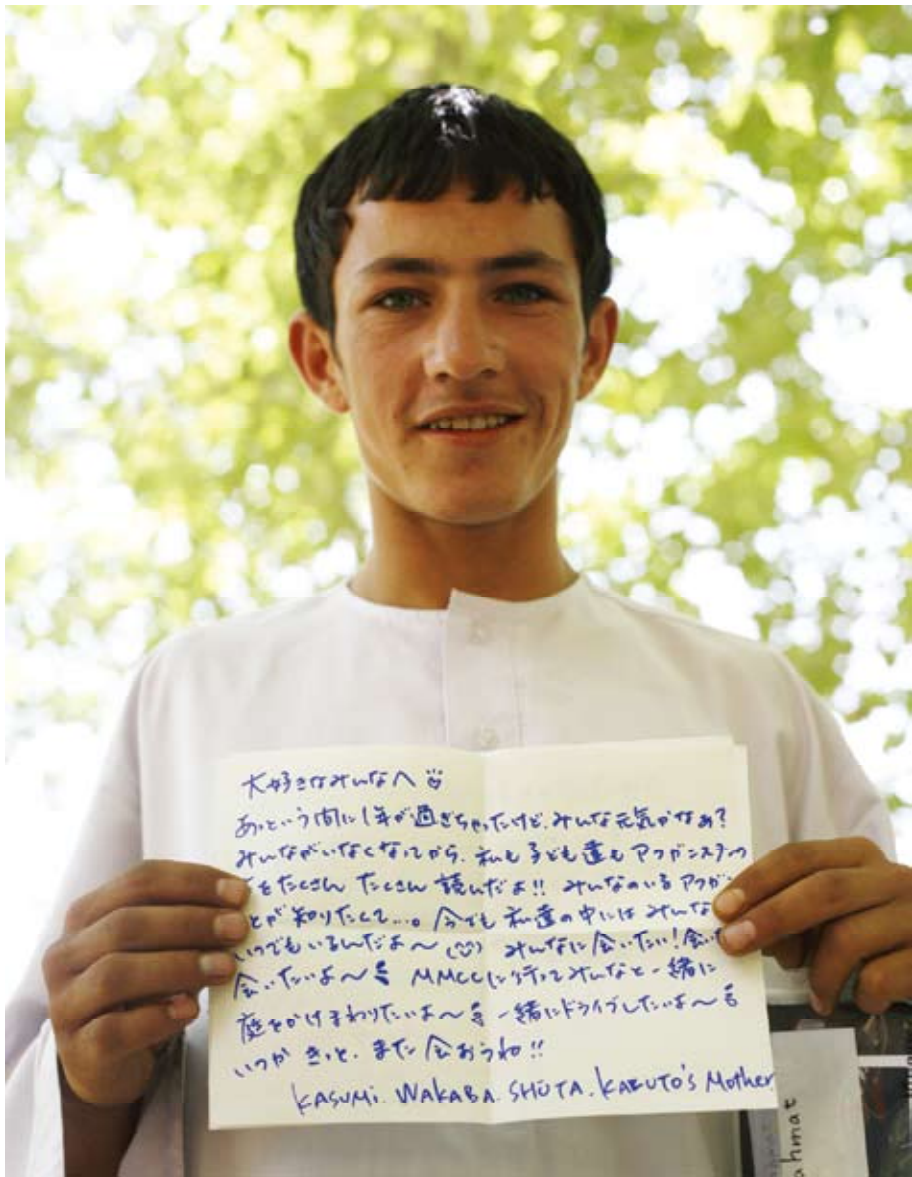 大好きなみんなへ
あっという間に1年が過ぎちゃったけど、みんな元気かなぁ?
みんながいなくなってから、私も子ども達もアフガンスタンの
をたくさん たくさん 読んだよ!! みんなのいるアフガン
とが知りたくて...。今でも私達の中にはみんな
いつでもいるんだよ〜 みんなに会いたい!会い
会いたいよ〜 MMCCに行ってみんなと一緒に
庭をかけまわりたいよ〜 一緒にドライブしたいよ〜
いつか きっと、また会おうね!!
KASUMI. WAKABA. SHUTA. KABUTO'S Mother
ahmat